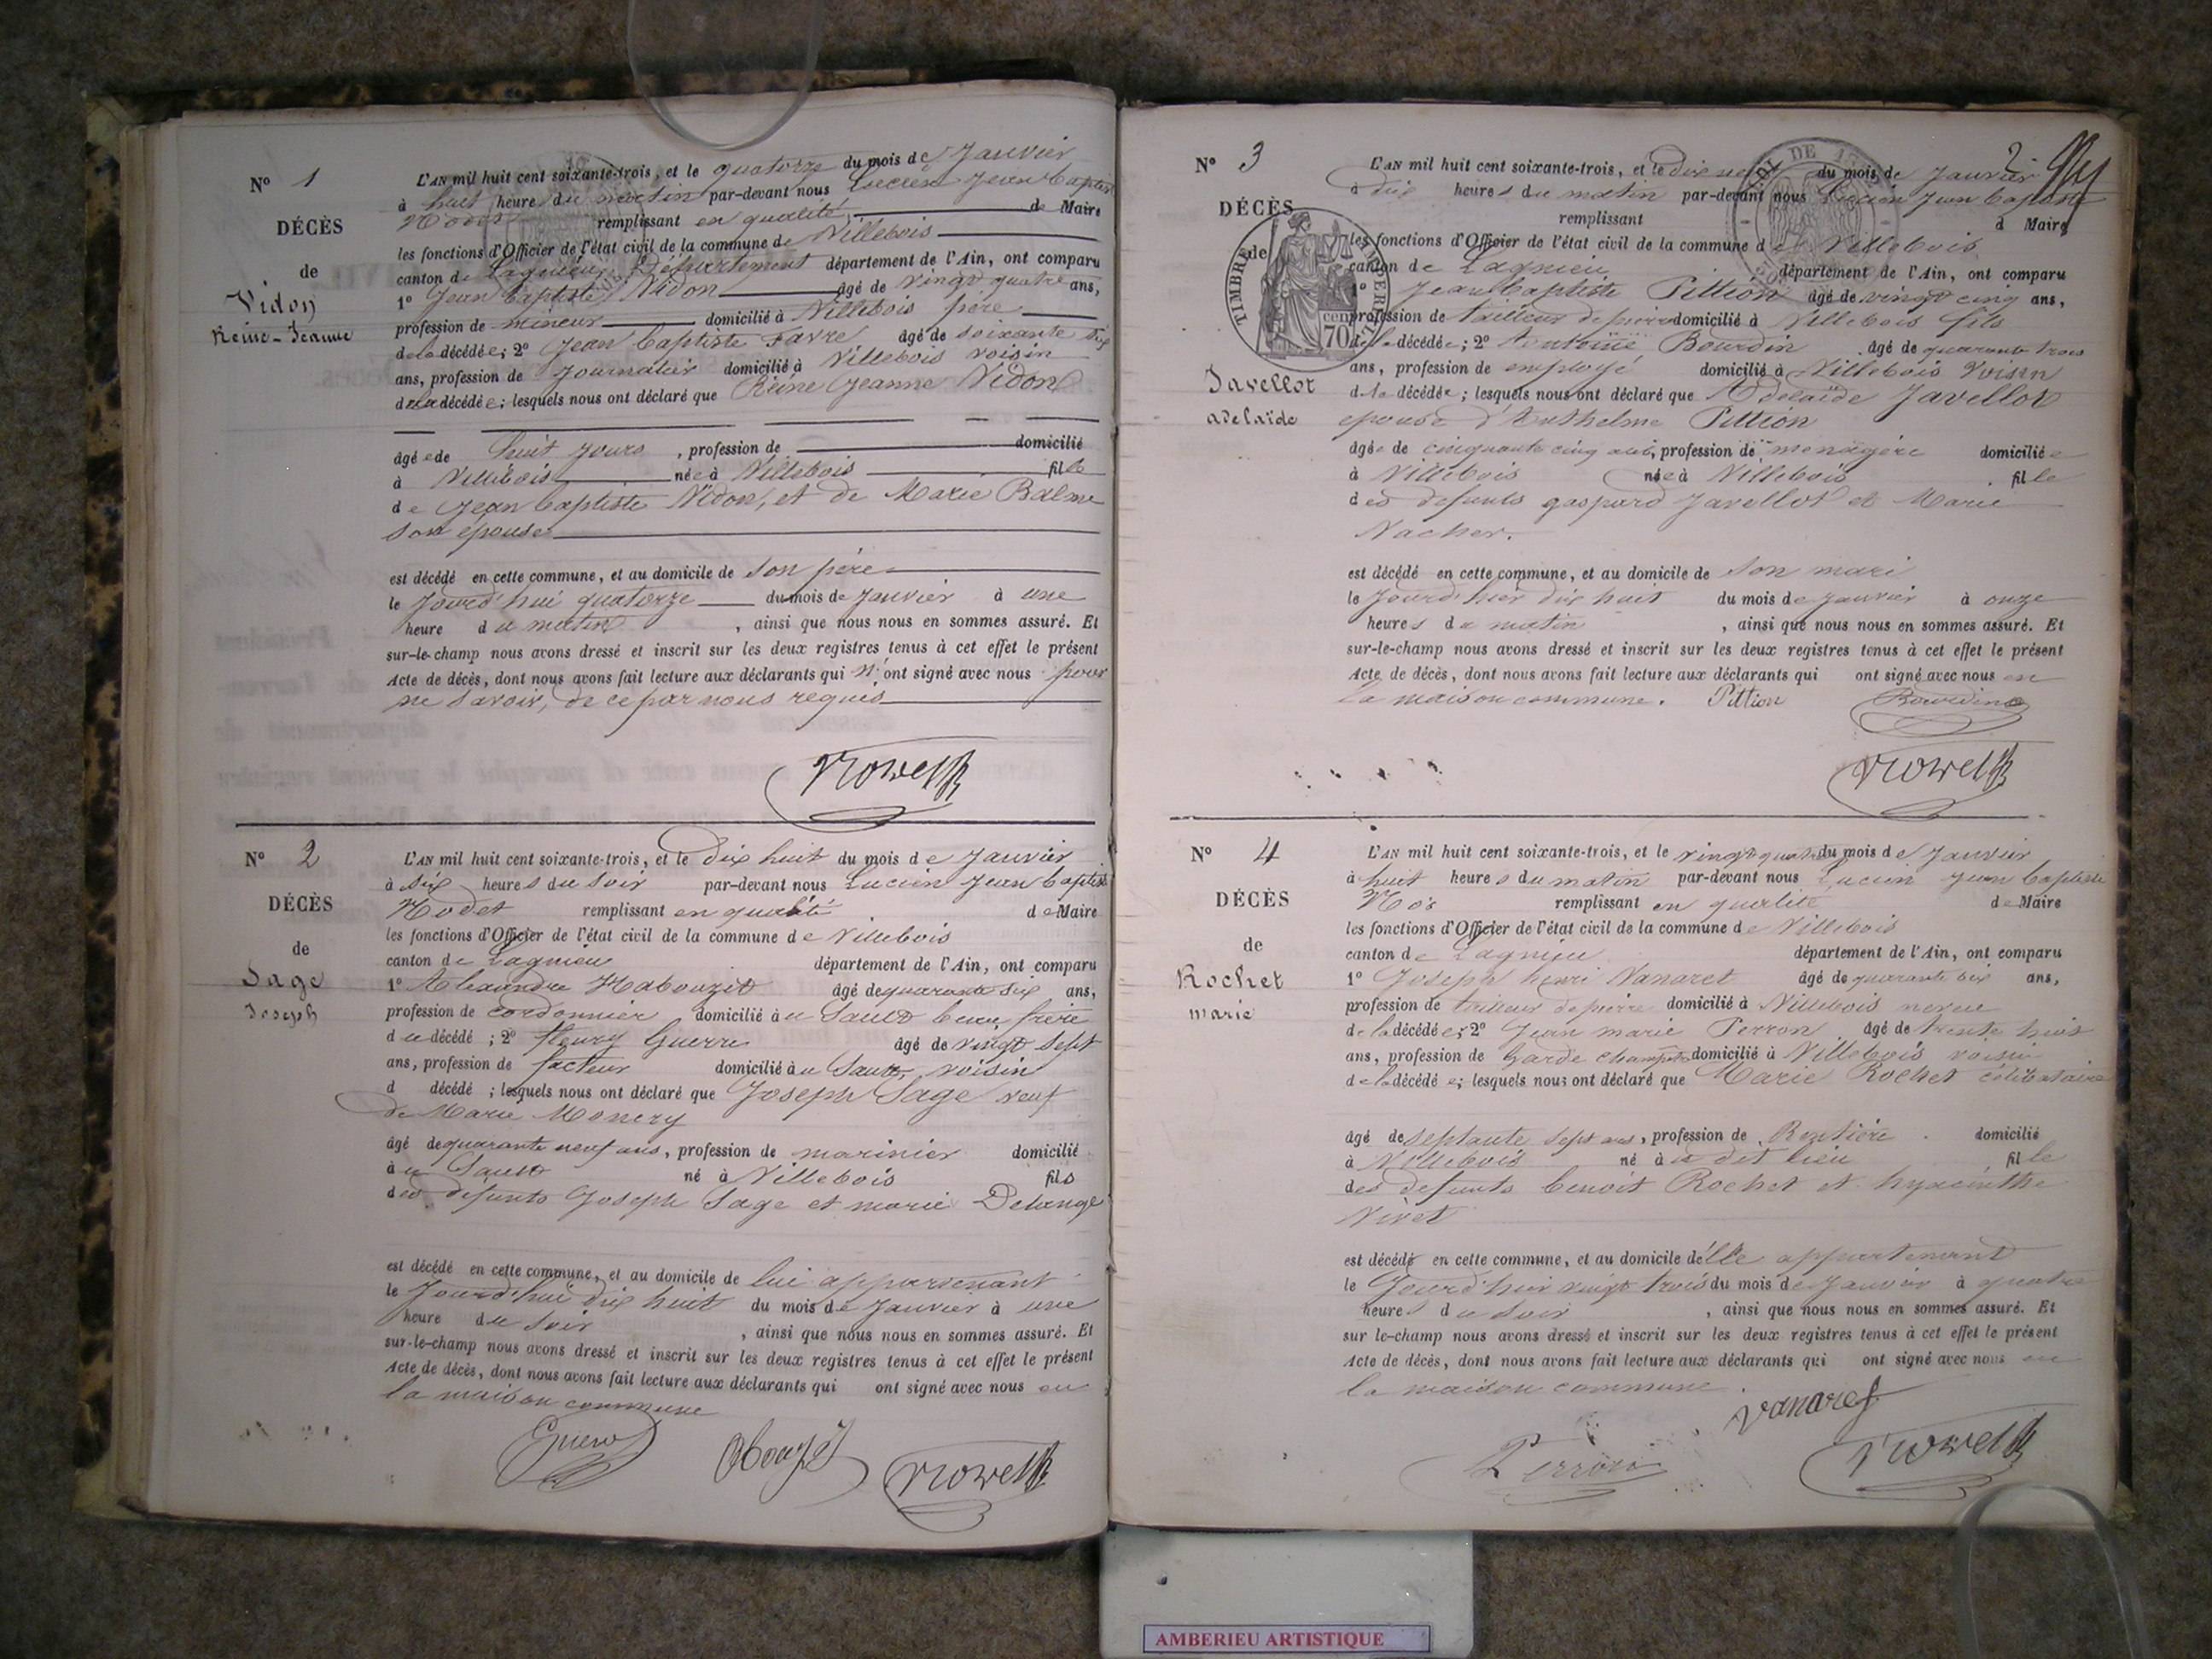 N° 1
DÉCÈS
de
Vidon
Reine-Jeanne
L'AN mil huit cent soixante-trois, et le quatorze du mois de Janvier
à huit heures du matin par-devant nous Lucien Jean Baptiste
remplissant en qualité de Maire
les fonctions d'Officier de l'état civil de la commune de Villebois
canton de Lagnieu, Département département de l'Ain, ont comparu
1° Jean Baptiste Vidon âgé de vingt quatre ans,
profession de mineur domicilié à Villebois père
de la décédée; 2° Jean Baptiste Favre âgé de soixante six
ans, profession de Journalier domicilié à Villebois voisin
de la décédée; lesquels nous ont déclaré que Reine Jeanne Vidon
âgée de huit jours, profession de domicilié
à Villebois née à Villebois fille
de Jean Baptiste Vidon, et de Marie Balme
son épouse
est décédé en cette commune, et au domicile de son père
le Jourd'hui quatorze du mois de Janvier à une
heure du matin, ainsi que nous nous en sommes assuré. Et
sur-le-champ nous avons dressé et inscrit sur les deux registres tenus à cet effet le présent
Acte de décès, dont nous avons fait lecture aux déclarants qui n'ont signé avec nous pour
ne savoir, de ce par nous requis
N° 2
DÉCÈS
de
Sage
Joseph
L'AN mil huit cent soixante-trois, et le dix huit du mois de Janvier
à six heures du soir par-devant nous Lucien Jean Baptiste
remplissant en qualité de Maire
les fonctions d'Officier de l'état civil de la commune de Villebois
canton de Lagnieu département de l'Ain, ont comparu
1° Alexandre Habouzit âgé de quarante six ans,
profession de cordonnier domicilié au Sault beau frère
du décédé; 2° fleury Guerre âgé de vingt sept
ans, profession de facteur domicilié au Sault, voisin
d décédé; lesquels nous ont déclaré que Joseph Sage veuf
de Marie Monery
âgé de quarante neuf ans, profession de marinier domicilié
au Sault né à Villebois fils
des défunts Joseph Sage et marie Delange
est décédé en cette commune, et au domicile de lui appartenant
le Jourd'hui dix huit du mois de Janvier à une
heure du soir, ainsi que nous nous en sommes assuré. Et
sur-le-champ nous avons dressé et inscrit sur les deux registres tenus à cet effet le présent
Acte de décès, dont nous avons fait lecture aux déclarants qui ont signé avec nous en
la maison commune
2
N° 3
DÉCÈS
de
TIMBRE IMPERIAL
70 cen
Javellot
adelaïde
L'AN mil huit cent soixante-trois, et le dix neuf du mois de Janvier
à dix heures du matin par-devant nous Lucien Jean Baptiste
remplissant d Maire
les fonctions d'Officier de l'état civil de la commune de Villebois
canton de Lagnieu département de l'Ain, ont comparu
1° Jean Baptiste Pittion âgé de vingt cinq ans,
profession de tailleur de pierre domicilié à Villebois fils
de la décédée; 2° Antoine Bourdin âgé de quarante trois
ans, profession de employé domicilié à Villebois voisin
d la décédée; lesquels nous ont déclaré que Adelaïde Javellot
épouse d'Anthelme Pittion
âgée de cinquante cinq ans, profession de ménagère domiciliée
à Villebois née à Villebois fille
des defunts gaspard Javellot et Marie
Nacher.
est décédé en cette commune, et au domicile de son mari
le Jourd'hier dix huit du mois de Janvier à onze
heures du matin, ainsi que nous nous en sommes assuré. Et
sur-le-champ nous avons dressé et inscrit sur les deux registres tenus à cet effet le présent
Acte de décès, dont nous avons fait lecture aux déclarants qui ont signé avec nous en
la maison commune. Pittion Bourdin
N° 4
DÉCÈS
de
Rochet
marie
L'AN mil huit cent soixante-trois, et le vingt quatre du mois de Janvier
à huit heures du matin par-devant nous Lucien Jean Baptiste
remplissant en qualité de Maire
les fonctions d'Officier de l'état civil de la commune de Villebois
canton de Lagnieu département de l'Ain, ont comparu
1° Joseph henri Vanaret âgé de quarante six ans,
profession de tailleur de pierre domicilié à Villebois neveu
de la décédée; 2° Jean marie Perron âgé de trente huit
ans, profession de Garde champêtre domicilié à Villebois voisin
de la décédée; lesquels nous ont déclaré que Marie Rochet célibataire
âgé de septante sept ans, profession de Rentière domicilié
à Villebois né au dit lieu fille
des defunts benoit Rochet et hyacinthe
Vivet
est décédé en cette commune, et au domicile d'elle appartenant
le Jourd'hier vingt trois du mois de Janvier à quatre
heures du soir, ainsi que nous nous en sommes assuré. Et
sur le-champ nous avons dressé et inscrit sur les deux registres tenus à cet effet le présent
Acte de décès, dont nous avons fait lecture aux déclarants qui ont signé avec nous en
la maison commune.
Vanaret
Perron
AMBERIEU ARTISTIQUE